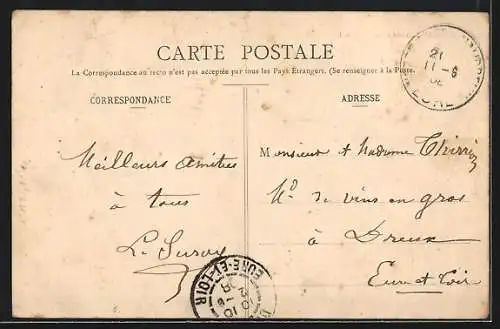 CARTE POSTALE
La Correspondance au recto n'est pas acceptée par tous les Pays Etrangers. (Se renseigner à la Poste.
CORRESPONDANCE
ADRESSE
21
11 -6
EURE
Meilleurs amitiés
à tous
Monsieur & Madame
Md de vins en gros
à Dreux
Eure et Loir
EURE-ET-LOIR